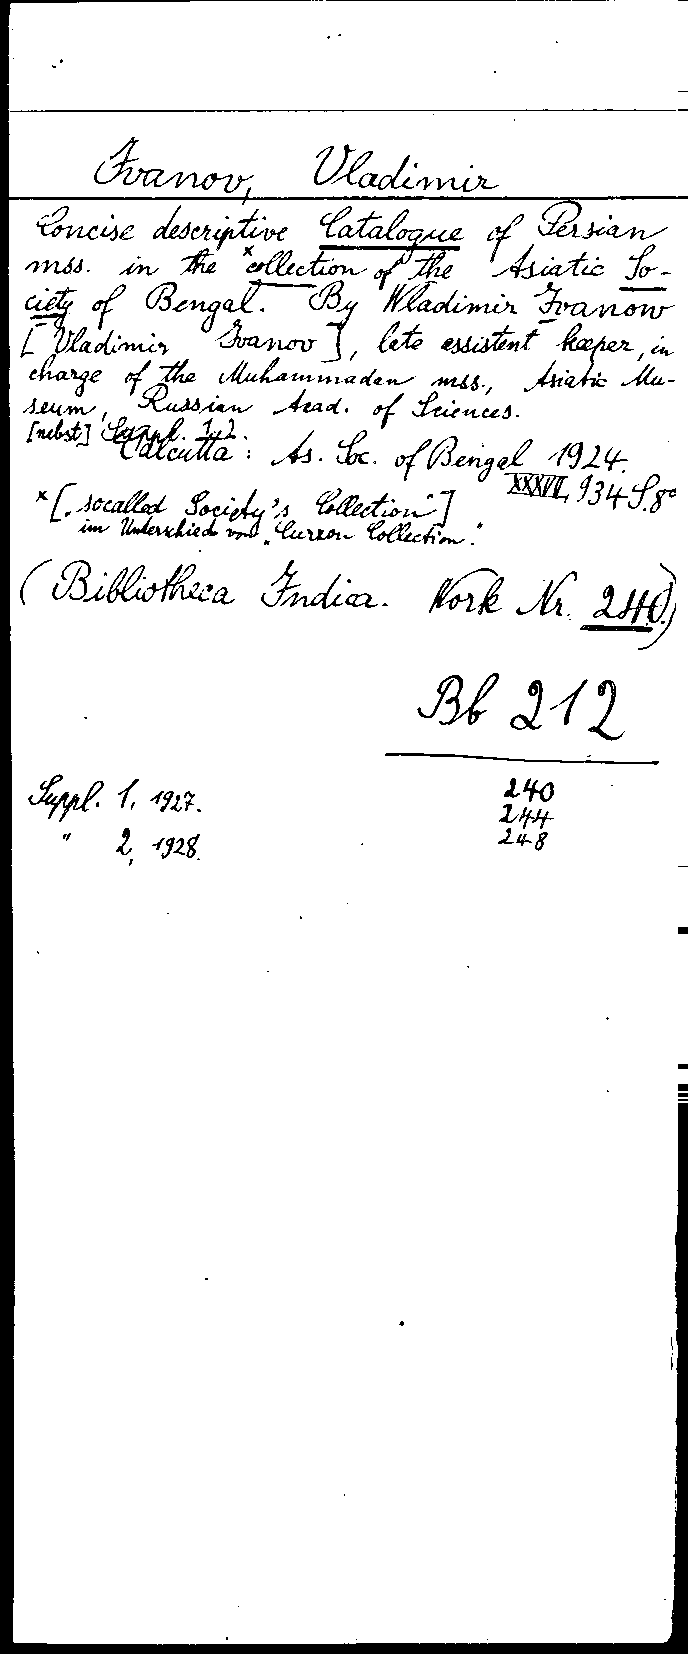 Ivanov, Vladimir
Concise descriptive Catalogue of Persian
mss. in the *collection of the Asiatic So-
ciety of Bengal. By Wladimir Ivanow
[Vladimir Ivanov], late assistent keeper, in
charge of the Muhammadan mss., Asiatic Mu-
seum, Russian Acad. of Sciences.
[nebst] Suppl. 1.2.
Calcutta: As. Soc. of Bengal 1924.
XXXVII, 934 S. 8°
*[„socalled Society's Collection"]
im Unterschied von „Curzon Collection."
(Bibliotheca Indica. Work Nr. 240.)
Bb 212
Suppl. 1, 1927. 240
244
" 2, 1928. 248